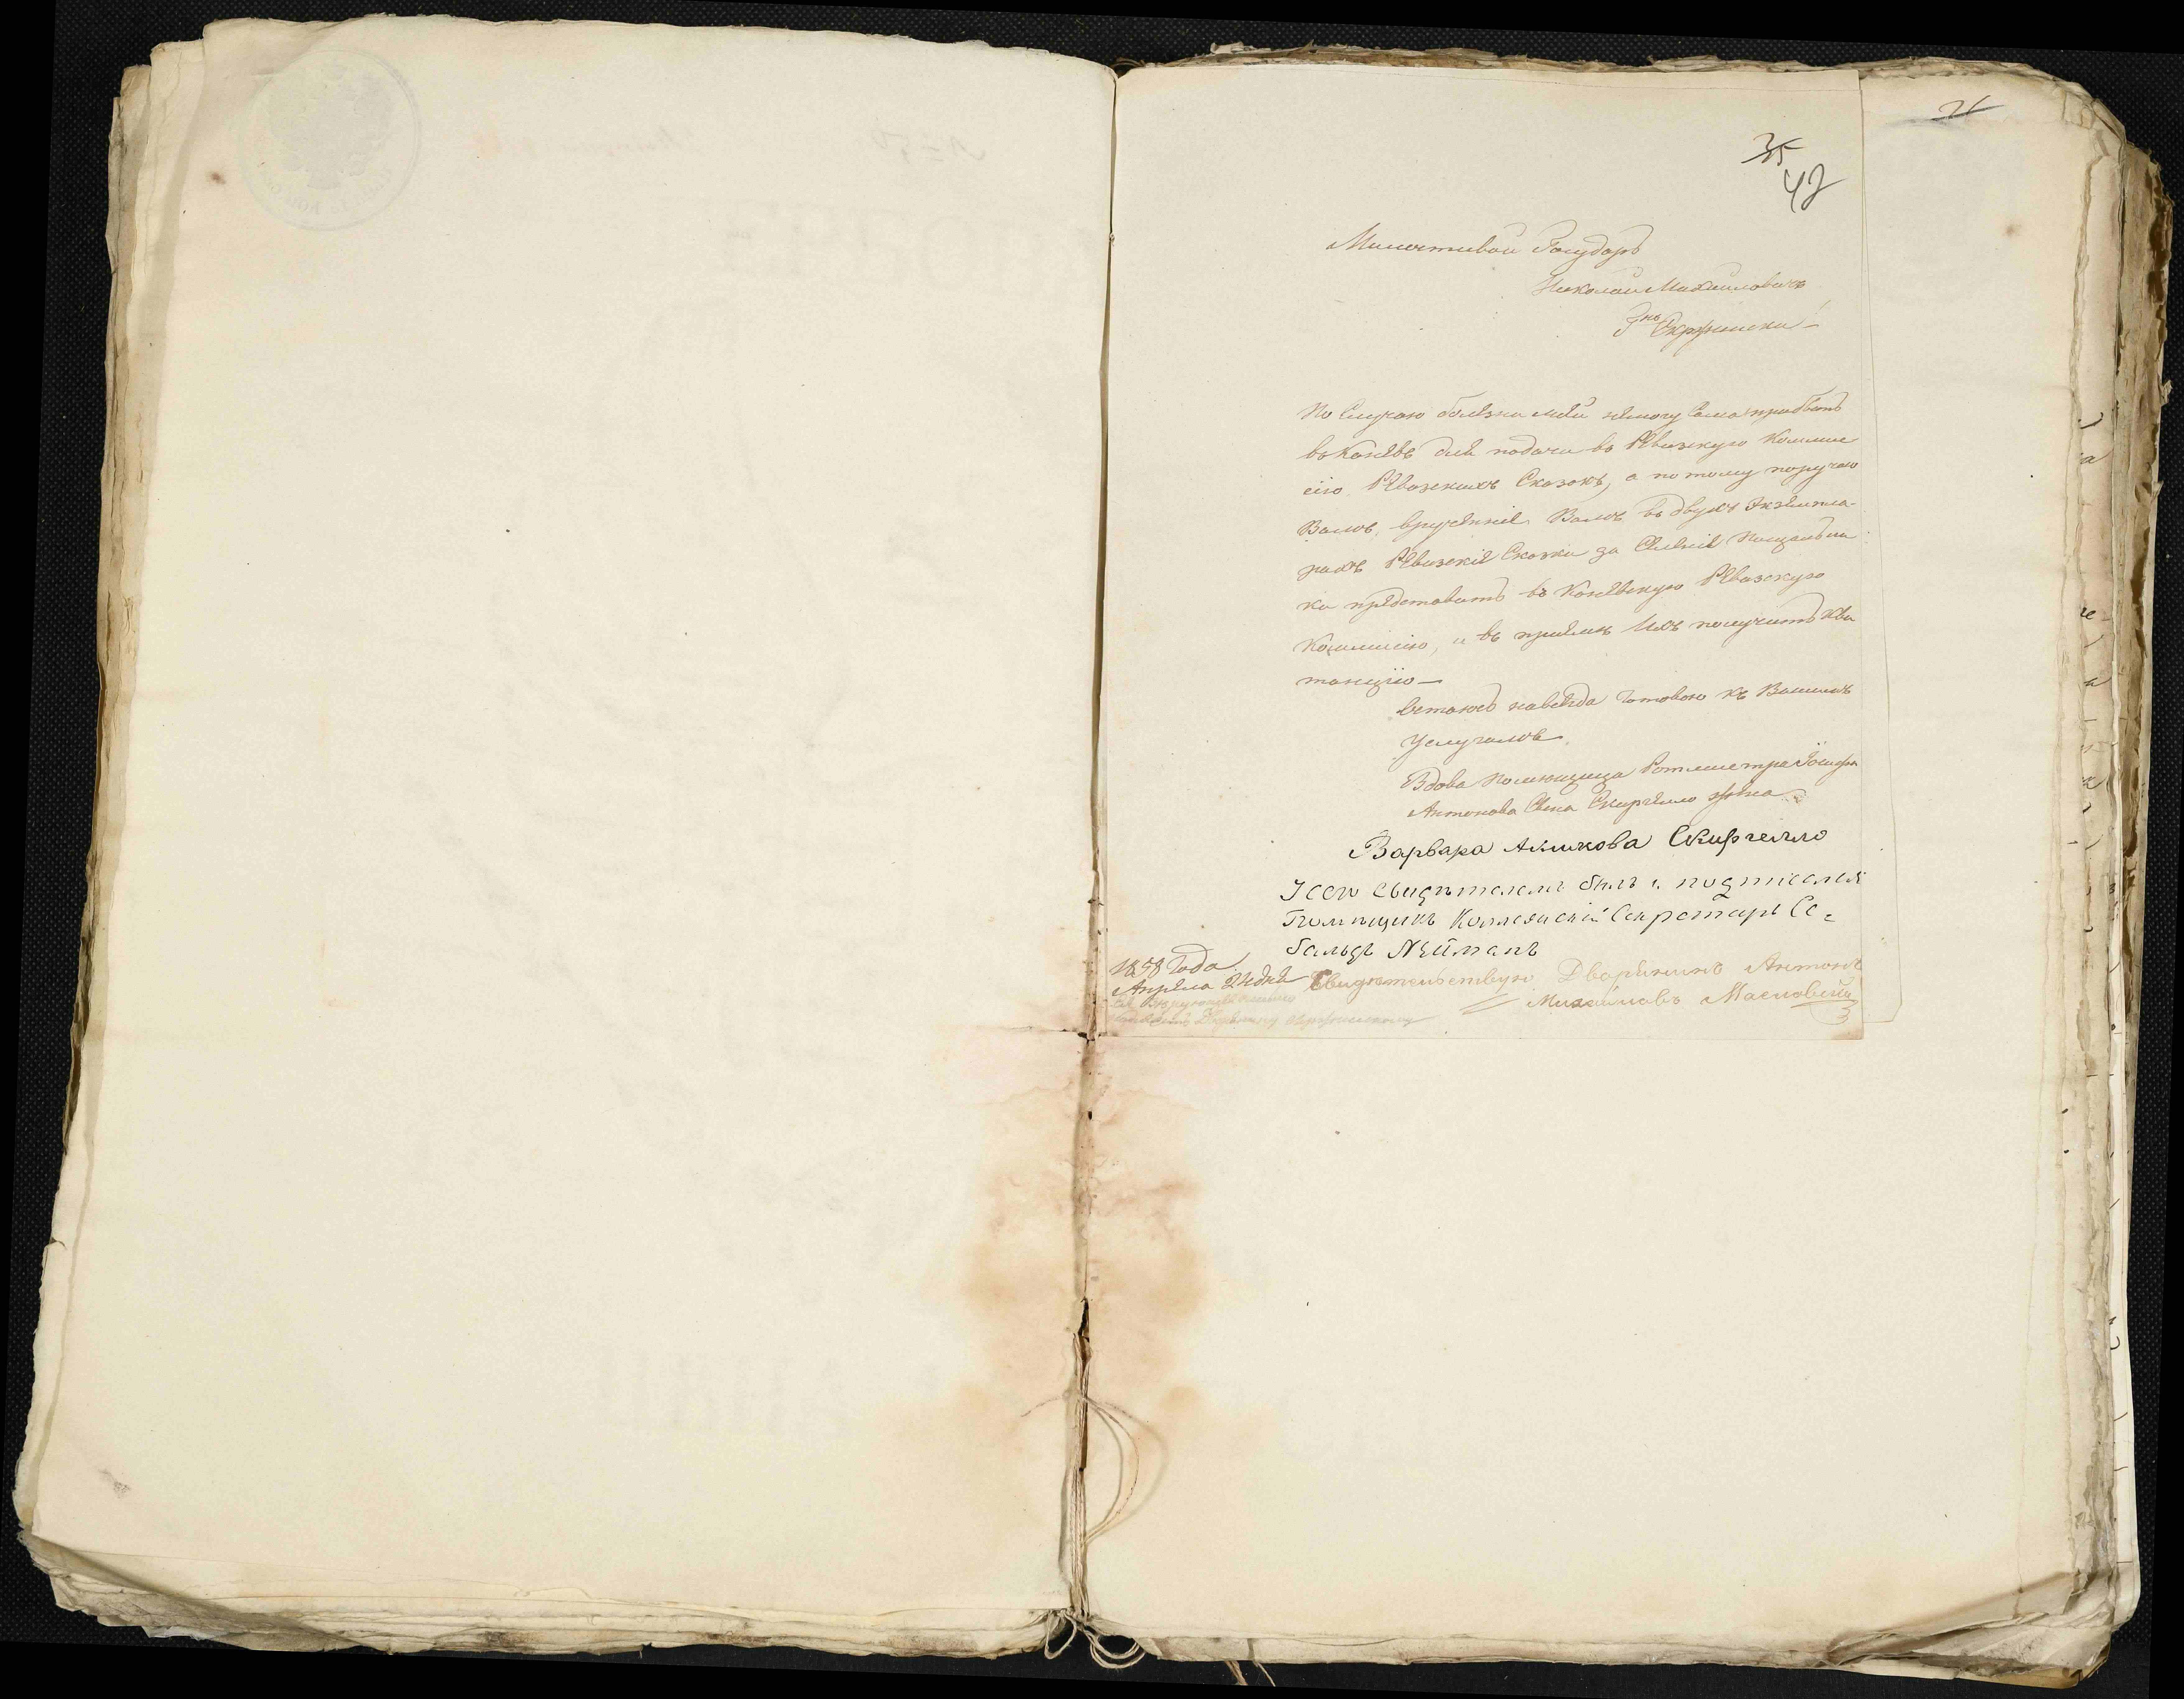 21
35
42
Милостивой Государь
Николай Михайловичъ
По Случаю болѣзни моей немогу Сама прибыть
въ Каневъ для подачи въ Ревизскую Коммис
сію Ревизскихъ Сказокъ, а потому поручаю
Вамъ, врученніе Вамъ въ двухъ Экземпля-
рахъ Ревизскіе Сказки за Селеніе
ка представить въ Каневскую Ревизскую
Коммисію, и въ пріемѣ Ихъ получить Кви
танцію —
Остаюсь навсегда Готовою къ Вашимъ
Услугамъ
Вдова помещица Ротмистра
Антонова Сына Скиргелло жена
Варвара Скиргелло
Усего свидѣтелемъ билъ и подписался
Помѣщикъ Коллежскій Секретарь Се=
бальдъ Нейманъ
1858 Года
Апреля 24 дня
Свидетельствую Дворянинъ Антонъ
Михайловъ Масловскій